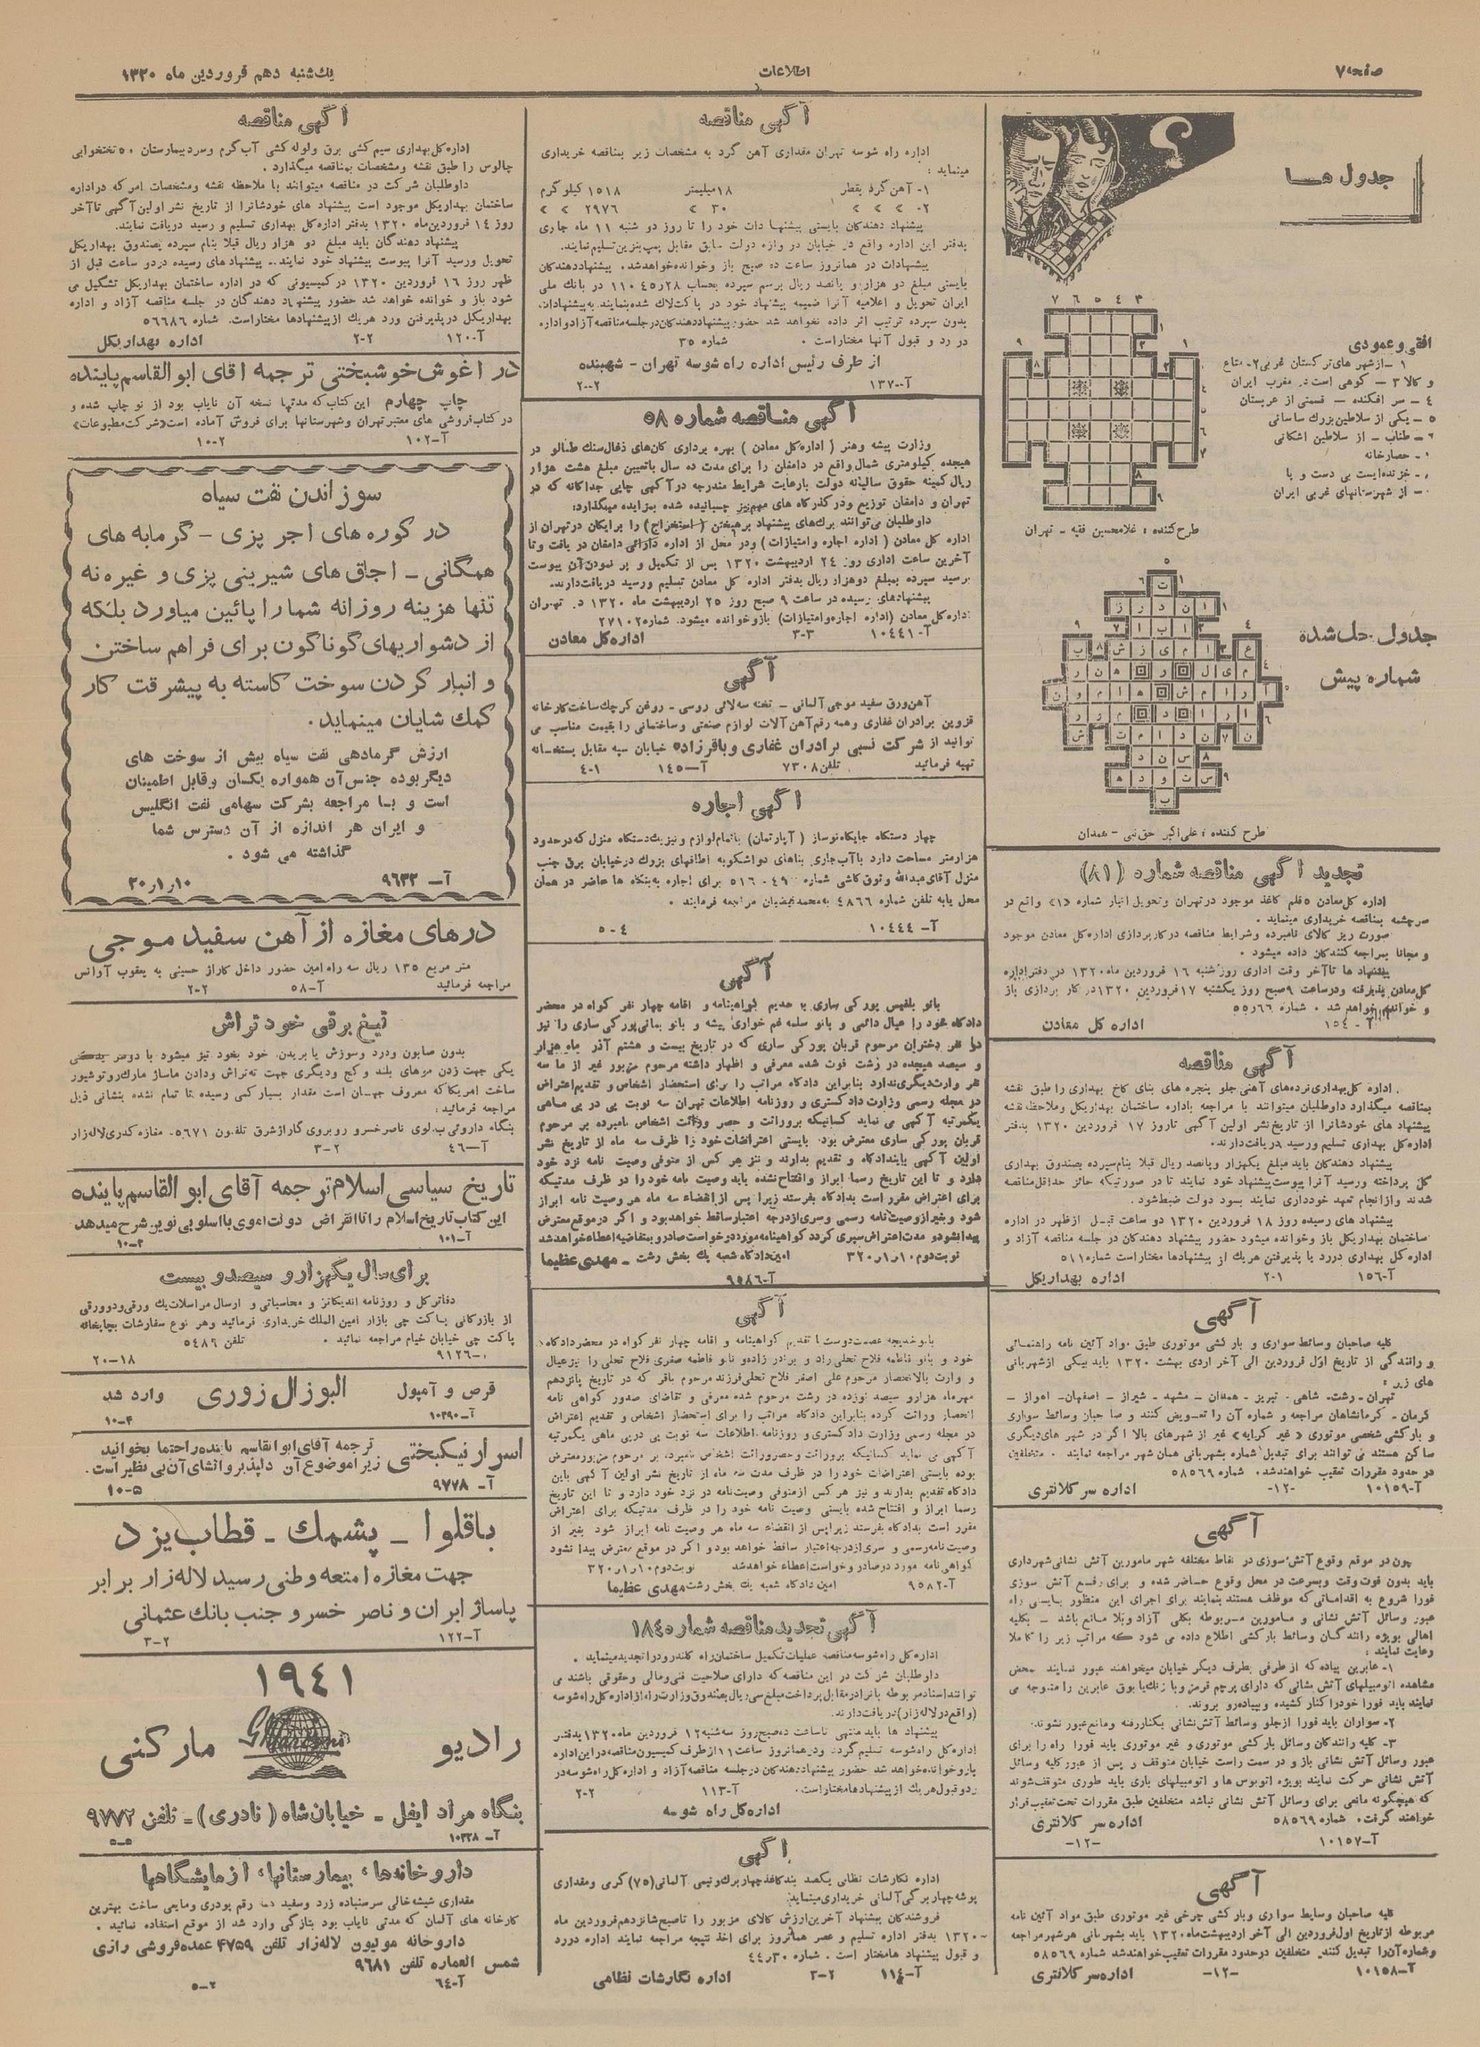 صفحه ۷
اطلاعات
یکشنبه دهم فروردین ماه ۱۳۲۰
جدول ها
افقی و عمودی
۱ – ازشهر های ترکستان غربی ۲- متاع
و کالا ۳ – کوهی است در مغرب ایران
۴ – سر افکنده – قسمتی از عربستان
۵ – یکی از سلاطین بزرگ ساسانی
۶ – طناب – از سلاطین اشکانی
حصارخانه
خزنده ایست بی دست و پا
از شهرستانهای غربی ایران
طرح کننده : غلامحسین فقیه – تهران
جدول حل شده
شماره پیش
طرح کننده : علی اکبر حق نبی – همدان
تجدید آگهی مناقصه شماره (۸۱)
اداره کل معادن ۵ قلم کاغذ موجود در تهران و تحویل انبار شماره «۱» واقع در
سرچشمه بمناقصه خریداری مینماید .
صورت ریز کالای نامبرده وشرایط مناقصه در کارپردازی اداره کل معادن موجود
و مجانا بمراجعه کنندگان داده میشود .
پیشنهاد ها تا آخر وقت اداری روز شنبه ۱۶ فروردین ماه ۱۳۲۰ در دفتر اداره
کل معادن پذیرفته و در ساعت ۹ صبح روز یکشنبه ۱۷ فروردین ۱۳۲۰ در کار پردازی باز
و خوانده خواهد شد . شماره ۵۵٫۶۶
آ-۱۵۴ اداره کل معادن
آگهی مناقصه
اداره کل بهداری نرده های آهنی جلو پنجره های بنای کاخ بهداری را طبق نقشه
بمناقصه میگذارد داوطلبان میتوانند با مراجعه باداره ساختمان بهداریکل وملاحظه نقشه
پیشنهاد های خودشانرا از تاریخ نشر اولین آگهی تاروز ۱۷ فروردین ۱۳۲۰ بدفتر
اداره کل بهداری تسلیم ورسید دریافت دارند.
پیشنهاد دهندگان باید مبلغ یکهزار وپانصد ریال قبلا بنام سپرده بصندوق بهداری
کل پرداخته ورسید آنرا پیوست پیشنهاد خود نمایند تا در صورتیکه حائز حداقل مناقصه
شدند وازانجام تعهد خودداری نمایند بسود دولت ضبط شود.
پیشنهاد های رسیده روز ۱۸ فروردین ۱۳۲۰ دو ساعت قبل از ظهر در اداره
ساختمان بهداریکل باز وخوانده میشود حضور پیشنهاد دهندگان در جلسه مناقصه آزاد و
اداره کل بهداری دررد یا پذیرفتن هریک از پیشنهادها مختار است شماره ۵۱۱
آ-۱۵۶ ۲-۱ اداره بهداریکل
آگهی
کلیه صاحبان وسائط سواری و بار کشی موتوری طبق مواد آئین نامه راهنمائی
و رانندگی از تاریخ اول فروردین الی آخر اردی بهشت ۱۳۲۰ باید بیکی از شهربانی
های زیر :
تهران – رشت – شاهی – تبریز – همدان – مشهد – شیراز – اصفهان – اهواز –
کرمان – کرمانشاهان مراجعه و شماره آن را تعویض کنند و صاحبان وسائط سواری
و بارکشی شخصی موتوری « غیر کرایه » غیر از شهر های بالا اگر در شهر های دیگری
ساکن هستند می توانند برای تبدیل شماره بشهربانی همان شهر مراجعه نمایند . متخلفین
در حدود مقررات تعقیب خواهند شد . شماره ۵۸۵۶۹
آ-۱۰۱۵۹ -۱۲- اداره سر کلانتری
آگهی
چون در موقع وقوع آتش سوزی در نقاط مختلفه شهر مامورین آتش نشانی شهرداری
باید بدون فوت وقت وبسرعت در محل وقوع حاضر شده و برای رفع آتش سوزی
فورا شروع به اقداماتی که موظف هستند بنمایند برای اجرای این منظور بایستی راه
عبور وسائل آتش نشانی و مامورین مربوطه بکلی آزاد وبلا مانع باشد – بکلیه
اهالی بویژه رانندگان وسائط بارکشی اطلاع داده می شود که مراتب زیر را کاملا
رعایت نمایند :
۱- عابرین پیاده که از طرفی بطرف دیگر خیابان میخواهند عبور نمایند بمحض
مشاهده اتومبیلهای آتش نشانی که دارای پرچم قرمز و با زنگ یا بوق عابرین را متوجه می
نمایند باید فورا خود را کنار کشیده وبپیاده رو بروند.
۲- سواران باید فورا از جلو وسائط آتش نشانی بکنار رفته ومانع عبور نشوند.
۳- کلیه رانندگان وسائل بارکشی موتوری و غیر موتوری باید فورا راه را برای
عبور وسائل آتش نشانی باز و در سمت راست خیابان متوقف و پس از عبور کلیه وسائل
آتش نشانی حرکت نمایند بویژه اتوبوس ها و اتومبیلهای باری باید طوری متوقف شوند
که هیچگونه مانعی برای وسائل آتش نشانی نباشد متخلفین طبق مقررات تحت تعقیب قرار
خواهند گرفت. شماره ۵۸۵۶۹ اداره سر کلانتری
آ-۱۰۱۵۷ -۱۲-
آگهی
کلیه صاحبان وسایط سواری وبارکشی چرخی غیر موتوری طبق مواد آئین نامه
مربوطه از تاریخ اول فروردین الی آخر اردیبهشت ماه ۱۳۲۰ باید بشهربانی هر شهر مراجعه
وشماره آنرا تبدیل کنند. متخلفین در حدود مقررات تعقیب خواهند شد شماره ۵۸۵۶۹
آ-۱۰۱۵۸ -۱۲- اداره سر کلانتری
آگهی مناقصه
اداره راه شوسه تهران مقداری آهن گرد به مشخصات زیر بمناقصه خریداری
مینماید :
۱- آهن گرد بقطر ۱۸ میلیمتر ۱۵۱۸ کیلو گرم
۲- » » » ۳۰ » ۲۹۷۶ » »
پیشنهاد دهندگان بایستی پیشنهادات خود را تا روز دو شنبه ۱۱ ماه جاری
بدفتر این اداره واقع در خیابان دروازه دولت سابق مقابل پمپ بنزین تسلیم نمایند.
پیشنهادات در همانروز ساعت ده صبح باز وخوانده خواهد شد . پیشنهاد دهندگان
بایستی مبلغ دو هزار و پانصد ریال برسم سپرده بحساب ۱۱۰۴۵٫۲۸ در بانک ملی
ایران تحویل و اعلامیه آنرا ضمیمه پیشنهاد خود در پاکت لاک شده بنمایند به پیشنهادات
بدون سپرده ترتیب اثر داده نخواهد شد حضور پیشنهاد دهندگان در جلسه مناقصه آزاد و اداره
در رد و قبول آنها مختار است . شماره ۳۵
از طرف رئیس اداره راه شوسه تهران – شهبنده
آ-۱۳۷ ۲-۲
آگهی مناقصه شماره ۵۸
وزارت پیشه وهنر ( اداره کل معادن ) بهره برداری کان های ذغال سنگ طمالو در
هیجده کیلومتری شمال واقع در دامغان را برای مدت ده سال باتعیین مبلغ هشت هزار
ریال کمینه حقوق سالیانه دولت بارعایت شرایط مندرجه در آگهی چاپی جداگانه که در
تهران و دامغان توزیع ودر گذرگاه های مهم نیز چسبانیده شده بمزایده میگذارد:
داوطلبان می توانند برگ های پیشنهاد برهیختن (استخراج) را برایگان در تهران از
اداره کل معادن ( اداره اجاره و امتیازات ) ودر محل از اداره دارائی دامغان دریافت وتا
آخرین ساعت اداری روز ۲۴ اردیبهشت ۱۳۲۰ پس از تکمیل و پر نمودن آن بپیوست
برسید سپرده بمبلغ دوهزار ریال بدفتر اداره کل معادن تسلیم ورسید دریافت دارند.
پیشنهادهای رسیده در ساعت ۹ صبح روز ۲۵ اردیبهشت ماه ۱۳۲۰ در تهران
اداره کل معادن (اداره اجاره وامتیازات) باز وخوانده میشود. شماره ۲۷۱۰۲
آ-۱۰۴۴۱ ۳-۳ اداره کل معادن
آگهی
آهن ورق سفید موجی آلمانی – تخته سه لائی روسی – روغن کرچک ساخت کارخانه
قزوین برادران غفاری وهمه رقم آهن آلات لوازم صنعتی وساختمانی را بقیمت مناسب می
توانید از شرکت نسبی برادران غفاری و باقرزاده خیابان سپه مقابل پستخانه
تهیه فرمائید تلفن ۷۳۰۸ آ-۱۴۵ ۴-۱
آگهی اجاره
چهار دستگاه جایگاه نوساز ( آپارتمان ) باتمام لوازم و نیز یکدستگاه منزل که در حدود
هزار متر مساحت دارد با آب جاری بناهای دو اشکوبه اطاقهای بزرگ در خیابان برق جنب
منزل آقای عبدالله وثوق کاشی شماره ۴۹-۵۱۶ برای اجاره به بنگاه ها حاضر در همان
محل یا به تلفن شماره ۴۸۶۶ به محمد مراجعه فرمایند .
آ-۱۰۴۴۴ ۵-۴
آگهی
بانو بلقیس پور کی ساری با تقدیم گواهینامه و اقامه چهار نفر گواه در محضر
دادگاه خود را عیال دائمی و بانو سلمه غم خواری پیشه و بانو بمانی پور کی ساری را نیز
دو نفر دختران مرحوم قربان پور کی ساری که در تاریخ بیست و هشتم آذر ماه هزار
و سیصد هیجده در رشت فوت شده معرفی و اظهار داشته مرحوم مزبور غیر از ما سه
نفر وارث دیگری ندارد بنابراین دادگاه مراتب را برای استحضار اشخاص و تقدیم اعتراض
در مجله رسمی وزارت دادگستری و روزنامه اطلاعات تهران سه نوبت پی در پی ماهی
یکمرتبه آگهی می نماید کسانیکه بروراثت و حصر وراثت اشخاص نامبرده بر مرحوم
قربان پور کی ساری معترض بود. بایستی اعتراضات خود را ظرف سه ماه از تاریخ نشر
اولین آگهی باین دادگاه و تقدیم بدارند و نیز هر کس از متوفی وصیت نامه نزد خود
دارد و تا این تاریخ رسما ابراز وافتتاح نشده باید وصیت نامه خود را در ظرف مدتیکه
برای اعتراض مقرر است بدادگاه بفرستد زیرا پس از انقضاء سه ماه هر وصیت نامه ابراز
شود وبغیر از وصیت نامه رسمی وسری از درجه اعتبار ساقط خواهد بود و اگر در موقع معترض
پیدا نشود و مدت اعتراض سپری گردد گواهینامه مورد درخواست صادر و بمتقاضیه اعطاء خواهد شد
نوبت دوم ۳۲۰٫۱٫۱۰ امین دادگاه شعبه یک بخش رشت – مهدی عظیما
آ-۹۵۸۶
آگهی
بانو خدیجه عصمت دوست با تقدیم گواهینامه و اقامه چهار نفر گواه در محضر دادگاه
خود و بانو فاطمه فلاح تجلی راد و برادر زاده و بانو فاطمه صغری فلاح تجلی را نیز عیال
و وارث بالانحصار مرحوم علی اصغر فلاح تجلی فرزند مرحوم باقر که در تاریخ پانزدهم
مهرماه هزارو سیصد نوزده در رشت مرحوم شده معرفی و تقاضای صدور گواهی نامه
انحصار وراثت کرده بنابراین دادگاه مراتب را برای استحضار اشخاص و تقدیم اعتراض
در مجله رسمی وزارت دادگستری و روزنامه اطلاعات سه نوبت پی در پی ماهی یکمرتبه
آگهی می نماید کسانیکه بروراثت وحصروراثت اشخاص نامبرده بر مرحوم مزبور معترض
بوده بایستی اعتراضات خود را در ظرف مدت سه ماه از تاریخ نشر اولین آگهی باین
دادگاه تقدیم بدارند و نیز هر کس از متوفی وصیت نامه در نزد خود دارد و تا این تاریخ
رسما ابراز و افتتاح شده بایستی وصیت نامه خود را در ظرف مدتیکه برای اعتراض
مقرر است بدادگاه بفرستد زیرا پس از انقضاء سه ماه هر وصیت نامه ابراز شود بغیر از
وصیت نامه رسمی و سری از درجه اعتبار ساقط خواهد بود و اگر در موقع معترض پیدا نشود
گواهی نامه مورد درخواست صادر و اعطاء خواهد شد نوبت دوم ۳۲۰٫۱٫۱۰
آ-۹۵۸۲ امین دادگاه شعبه یک بخش رشت مهدی عظیما
آگهی تجدید مناقصه شماره ۱۸۴۵
اداره کل راه شوسه مناقصه عملیات تکمیل ساختمان راه کلندرود را تجدید مینماید .
داوطلبان شرکت در این مناقصه که دارای صلاحیت فنی ومالی و حقوقی باشند می
توانند اسناد مربوطه را در مقابل پرداخت مبلغ سی ریال بصندوق وزارت راه از اداره کل راه شوسه
(واقع در لاله زار) دریافت دارند.
پیشنهاد ها باید منتهی تا ساعت ده صبح روز سه شنبه ۱۲ فروردین ماه ۱۳۲۰ بدفتر
اداره کل راه شوسه تسلیم گردد ودر همانروز ساعت ۱۱ از طرف کمیسیون مناقصه در این اداره
باز وخوانده خواهد شد حضور پیشنهاد دهندگان در جلسه مناقصه آزاد و اداره کل راه شوسه در
رد و قبول هر یک از پیشنهادها مختار است. آ-۱۱۳ ۲-۲
اداره کل راه شوسه
آگهی
اداره نگارشات نظامی یکصد بند کاغذ چهار برگ ونیمی آلمانی (۷۵) گرمی ومقداری
پوشه چهار برگی آلمانی خریداری مینماید:
فروشندگان پیشنهاد آخرین ارزش کالای مزبور را تا صبح شانزدهم فروردین ماه
۱۳۲۰ بدفتر اداره تسلیم و عصر همانروز برای اخذ نتیجه مراجعه نمایند اداره دررد
و قبول پیشنهاد ها مختار است . شماره ۴۴٫۳۰
آ-۱۱۴ ۳-۲ اداره نگارشات نظامی
آگهی مناقصه
اداره کل بهداری سیم کشی برق ولوله کشی آب گرم وسرد بیمارستان ۵۰ تختخوابی
چالوس را طبق نقشه ومشخصات بمناقصه میگذارد .
داوطلبان شرکت در مناقصه میتوانند با ملاحظه نقشه ومشخصات امر که در اداره
ساختمان بهداریکل موجود است پیشنهاد های خودشانرا از تاریخ نشر اولین آگهی تا آخر
روز ۱۴ فروردین ماه ۱۳۲۰ بدفتر اداره کل بهداری تسلیم و رسید دریافت نمایند.
پیشنهاد دهندگان باید مبلغ دو هزار ریال قبلا بنام سپرده بصندوق بهداریکل
تحویل ورسید آنرا پیوست پیشنهاد خود نمایند. پیشنهاد های رسیده دردو ساعت قبل از
ظهر روز ۱۶ فروردین ۱۳۲۰ در کمیسیونی که در اداره ساختمان بهداریکل تشکیل می
شود باز و خوانده خواهد شد حضور پیشنهاد دهندگان در جلسه مناقصه آزاد و اداره
بهداریکل در پذیرفتن ورد هریک از پیشنهادها مختار است. شماره ۵۶۶۸۶
آ-۱۲۰ ۲-۲ اداره بهداریکل
در اغوش خوشبختی ترجمه اقای ابوالقاسم پاینده
چاپ چهارم این کتاب که مدتها نسخه آن نایاب بود از نو چاپ شده و
در کتاب فروشی های معتبر تهران وشهرستانها برای فروش آماده است (شرکت مطبوعات)
آ-۱۰۲ ۱۰-۲
سوزاندن نفت سیاه
در کوره های اجر پزی – گرمابه های
همگانی – اجاق های شیرینی پزی و غیره نه
تنها هزینه روزانه شما را پائین میاورد بلکه
از دشواریهای گوناگون برای فراهم ساختن
و انبار کردن سوخت کاسته به پیشرفت کار
کمک شایان مینماید.
ارزش گرمادهی نفت سیاه بیش از سوخت های
دیگر بوده جنس آن همواره یکسان وقابل اطمینان
است و با مراجعه بشرکت سهامی نفت انگلیس
و ایران هر اندازه از آن دسترس شما
گذاشته می شود .
آ-۹۶۳۲ ۲۰٫۱٫۱۰
درهای مغازه از آهن سفید موجی
متر مربع ۱۳۵ ریال سه راه امین حضور داخل گاراژ حسینی به یعقوب آوانس
مراجعه فرمائید آ-۵۸ ۲-۲
تیغ برقی خود تراش
بدون صابون ودرد وسوزش یا بریدن. خود بخود تیز میشود با دوسر یدکی
یکی جهت زدن موهای بلند وکج ودیگری جهت ته تراش ودادن ماساژ مارک روتوشیور
ساخت امریکا که معروف جهان است مقدار بسیار کمی رسیده تا تمام نشده بنشانی ذیل
مراجعه فرمائید:
بنگاه داروئی پهلوی ناصرخسرو روبروی گاراژ شرق تلفون ۵۶۷۱. مغازه کدری لاله زار
آ-۴۶ ۳-۲
تاریخ سیاسی اسلام ترجمه آقای ابوالقاسم پاینده
این کتاب تاریخ اسلام را تا انقراض دولت اموی با اسلوبی نوین شرح میدهد
آ-۱۰۱ ۱۰-۲
برای سال یکهزار و سیصد و بیست
دفاتر کل و روزنامه اندیکاتر و محاسباتی و ارسال مراسلات یک ورقی ودوورقی
از بازرگانی پاکت چی بازار امین الملک خریداری فرمائید وهر نوع سفارشات بچاپخانه
پاکت چی خیابان خیام مراجعه نمائید . تلفن ۵۴۸۹
۹۱۲۶ ۲۰-۱۸
قرص و آمپول البوزال زوری وارد شد
آ-۱۰۳۹۰ ۱۰-۴
اسرار نیکبختی ترجمه آقای ابوالقاسم پاینده را حتما بخوانید
زیرا موضوع آن دلپذیر وانشای آن بی نظیر است.
آ-۹۷۷۸ ۱۰-۵
باقلوا – پشمک – قطاب یزد
جهت مغازه امتعه وطنی رسید لاله زار برابر
پاساژ ایران و ناصر خسرو جنب بانک عثمانی
آ-۱۲۲ ۳-۲
۱۹۴۱
رادیو Marconi مارکنی
بنگاه مراد ایفل – خیابان شاه (نادری) – تلفن ۹۷۷۲
آ-۱۰۳۲۸ ۵-۵
داروخانه ها، بیمارستانها، ازمایشگاهها
مقداری شیشه خالی سرسنباده زرد وسفید همه رقم پودری ومایعی ساخت بهترین
کارخانه های آلمان که مدتی نایاب بود بتازگی وارد شد از موقع استفاده نمائید .
داروخانه مولیون لاله زار تلفن ۴۷۵۹ عمده فروشی رازی
شمس العماره تلفن ۹۶۸۱
آ-۶۴ ۵-۲